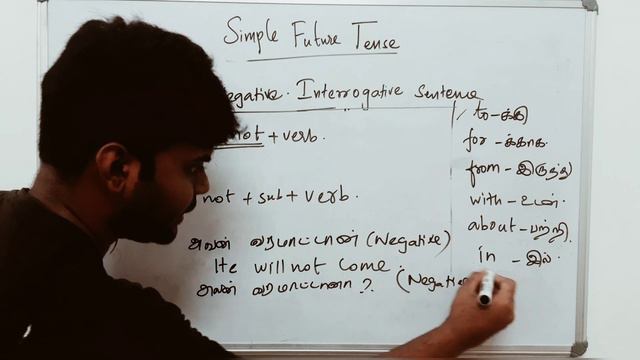 Simple Future Tense
egative. Interrogative Sentence
not + verb.
not + sub + verb.
அவன் வரமாட்டான் (Negative)
He will not come.
அவன் வரமாட்டானா? (Negative
to - க்கு
for - க்காக
from - இருந்து
with - உடன்.
about - பற்றி.
in - இல்.